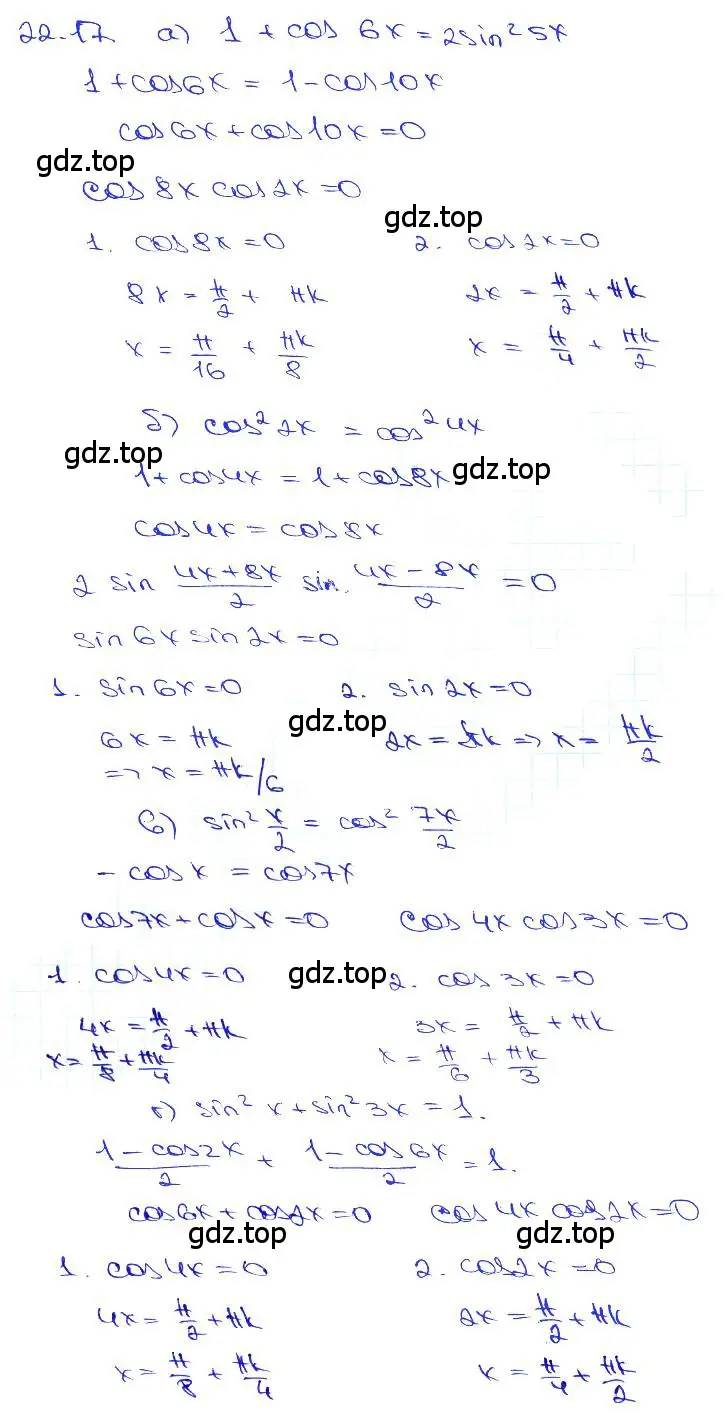 22.17 а) 1 + cos 6x = 2sin²5x
1 + cos6x = 1 - cos10x
cos6x + cos10x = 0
gdz.top
cos 8x cos2x = 0
gdz.top
1. cos8x = 0 2. cos2x = 0
8x = π/2 + πk 2x = π/2 + πk
x = π/16 + πk/8 x = π/4 + πk/2
б) cos²2x = cos²4x
gdz.top
1 + cos4x = 1 + cos8x gdz.top
cos4x = cos8x
2 sin (4x + 8x)/2 sin (4x - 8x)/2 = 0
sin6x sin2x = 0
1. sin6x = 0 2. sin2x = 0
gdz.top
6x = πk 2x = πk => x = πk/2
=> x = πk/6
в) sin² x/2 = cos² 7x/2
- cosx = cos7x
cos7x + cosx = 0 cos4x cos3x = 0
1. cos4x = 0 gdz.top 2. cos3x = 0
4x = π/2 + πk 3x = π/2 + πk
x = π/8 + πk/4 x = π/6 + πk/3
г) sin²x + sin²3x = 1.
(1 - cos2x)/2 + (1 - cos6x)/2 = 1.
cos6x + cos2x = 0 cos4x cos2x = 0
gdz.top gdz.top
1. cos4x = 0 2. cos2x = 0
4x = π/2 + πk 2x = π/2 + πk
x = π/8 + πk/4 x = π/4 + πk/2